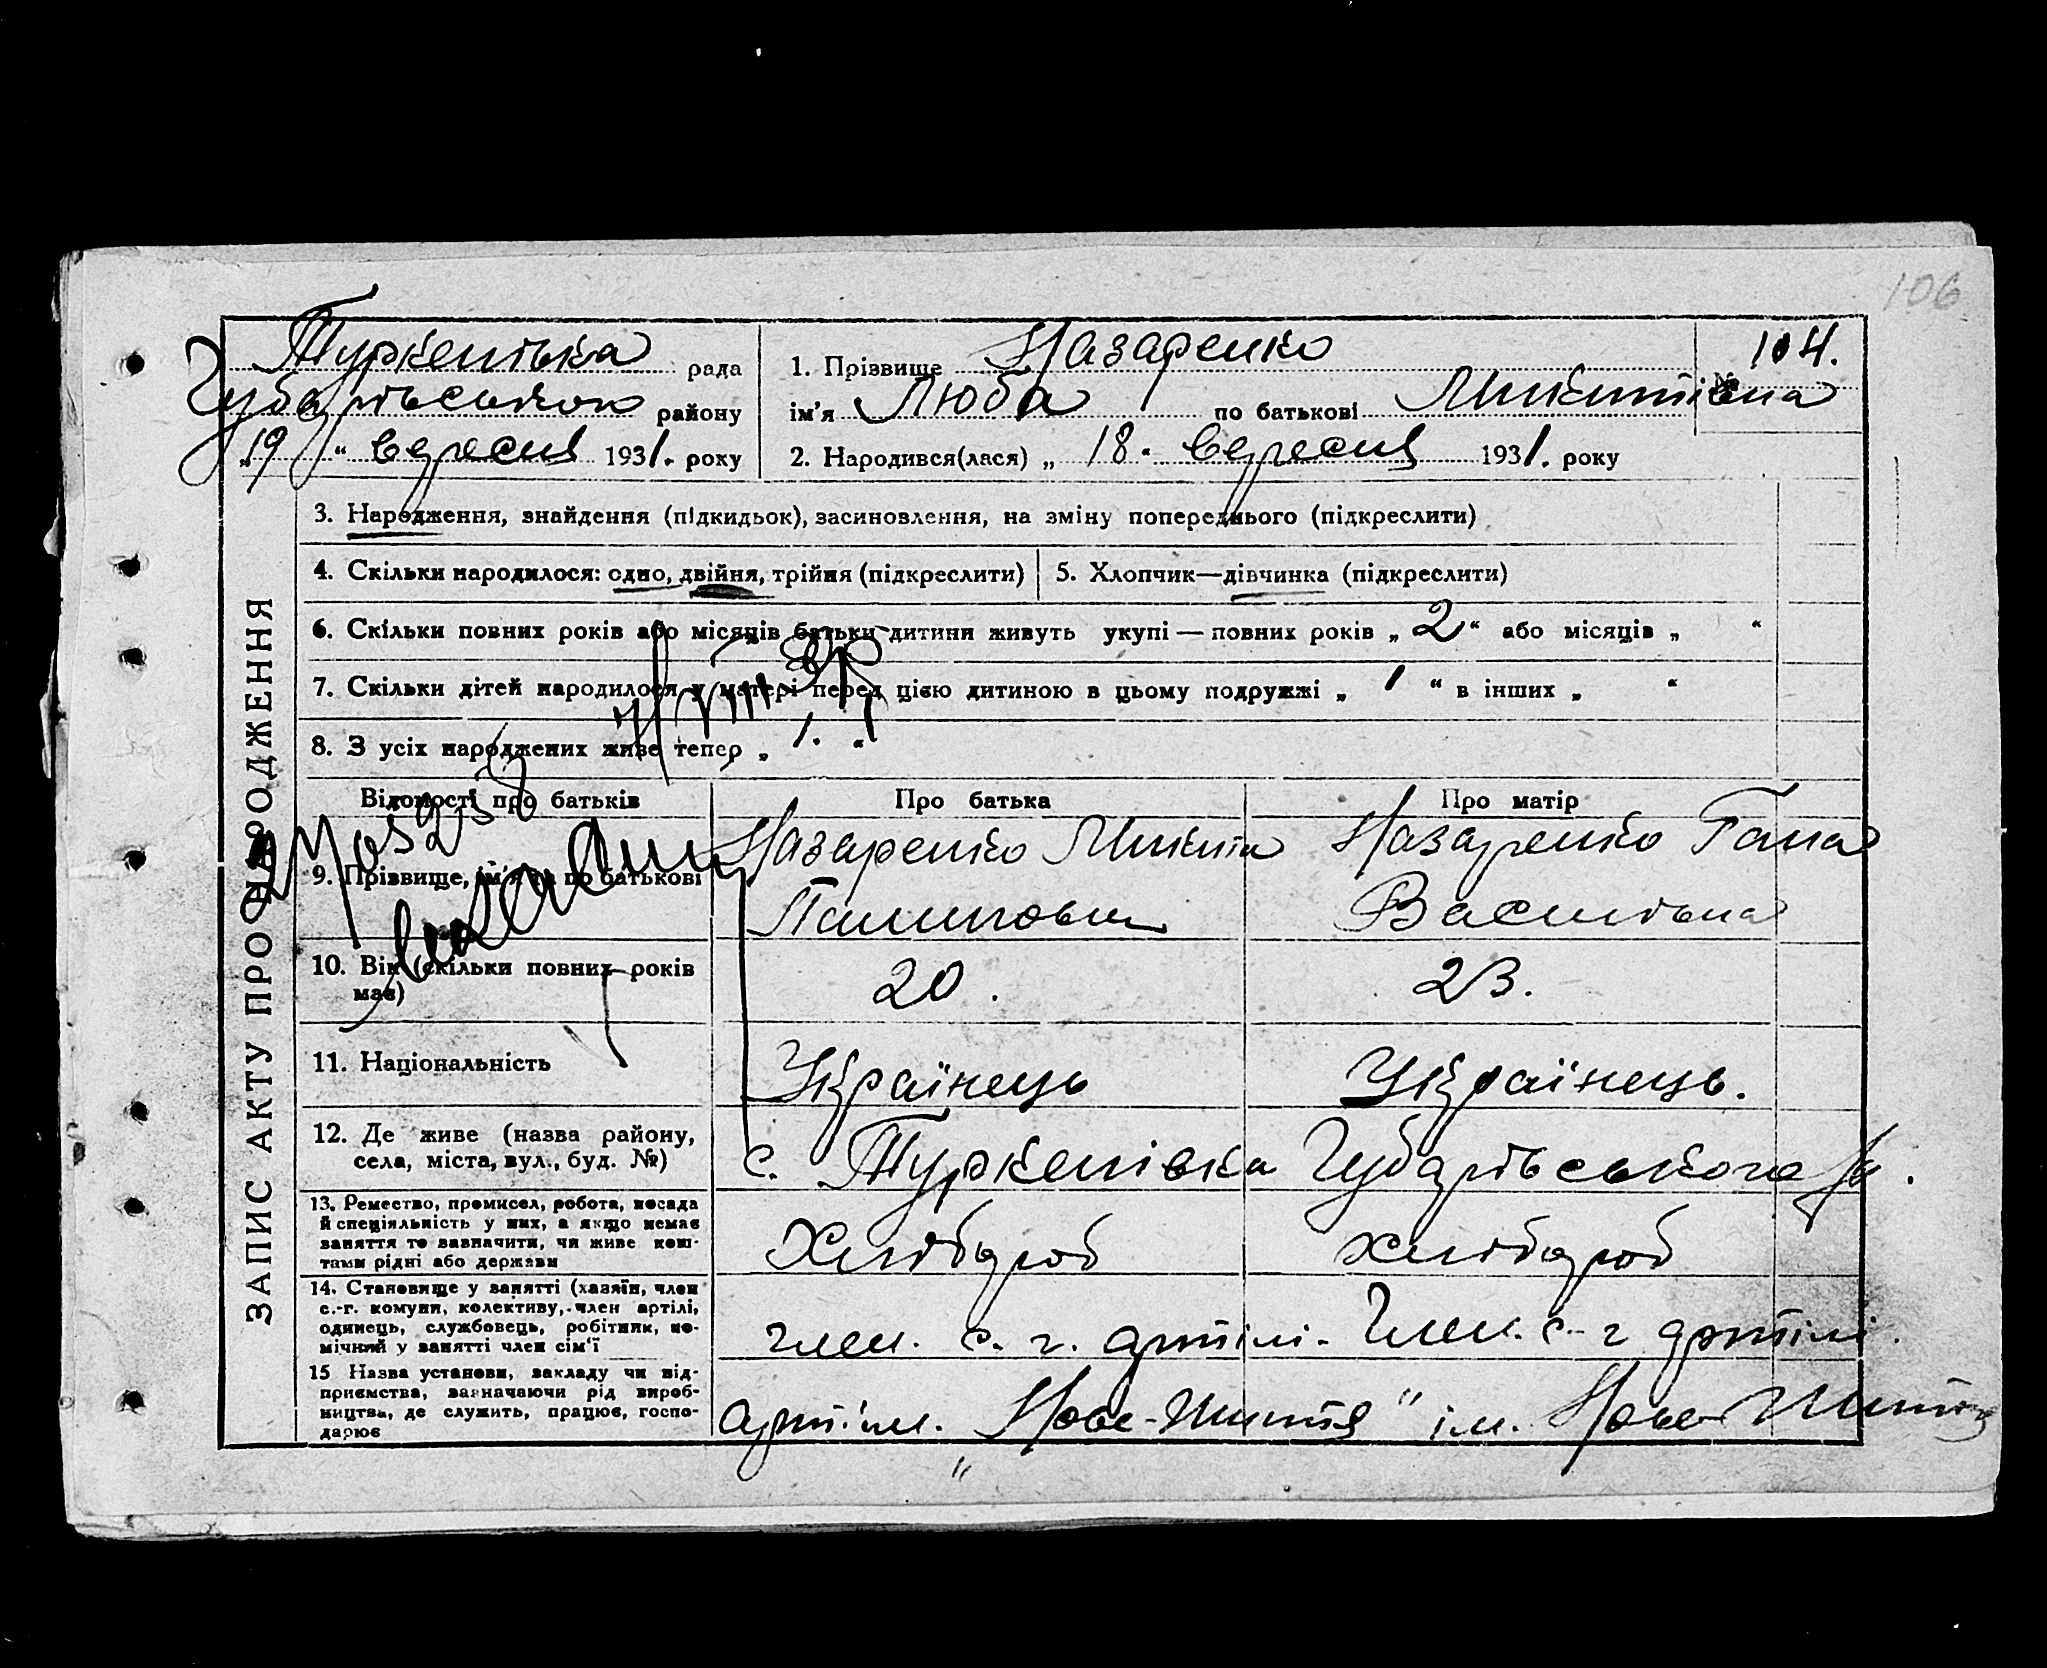 106
Туркенівка рада
Губарівського району
„19“ вересня 1931. року
1. Прізвище Назаренко
№ 104.
ім'я Люба по батькові Микитівна
2. Народився(лася) „ 18. вересня 1931. року
ЗАПИС АКТУ ПРО НАРОДЖЕННЯ
3. Народження, знайдення (підкидьок), засиновлення, на зміну попереднього (підкреслити)
4. Скільки народилося: одно, двійня, трійня (підкреслити)
5. Хлопчик—дівчинка (підкреслити)
6. Скільки повних років або місяців батьки дитини живуть укупі — повних років „ 2 “ або місяців „ “
7. Скільки дітей народилося у матері перед цією дитиною в цьому подружжі „ 1 “ в інших „ “
8. З усіх народжених живе тепер „ 1. “
Відомості про батьків
Про батька
Про матір
9. Прізвище, ім'я та по батькові
Назаренко Микита
Назаренко Гана
Василівна
10. Вік (скільки повних років
має)
20.
23.
11. Національність
Українець
Українець.
12. Де живе (назва району,
села, міста, вул., буд. №)
с. Туркенівка Губарівського
13. Ремество, промисел, робота, посада
й спеціяльність у них, а якщо немає
заняття то зазначити, чи живе кош-
тами рідні або держави
Хлібороб
хлібороб
14. Становище у занятті (хазяїн, член
с.-г. комуни, колективу, член артілі,
одинець, службовець, робітник, по-
мічний у занятті член сім'ї
член. с. г. артілі.
Член. с.-г артілі.
15 Назва установи, закладу чи під-
приємства, зазначаючи рід вироб-
ництва, де служить, працює, госпо-
дарює
арт. ім. „Нове-Життя“
ім. Нове Життя